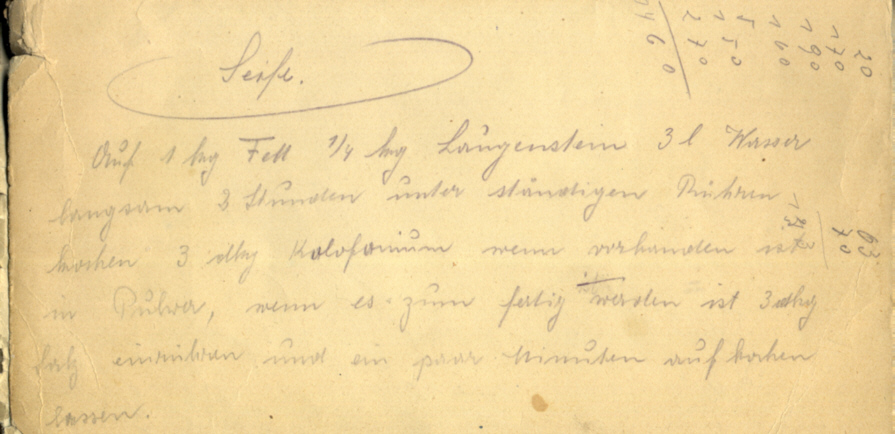 Seife.
Auf 1 kg Fett 1/4 kg Laugenstein 3 l Wasser
langsam 3 Stunden unter ständigen Rühren
kochen 3 dkg Kolofonium wenn vorhanden ist
in Pulver, wenn es zum fertig werden ist 3 dkg
Salz einrühren und ein paar Minuten aufkochen
lassen.
20
170
190
160
150
270
63
70